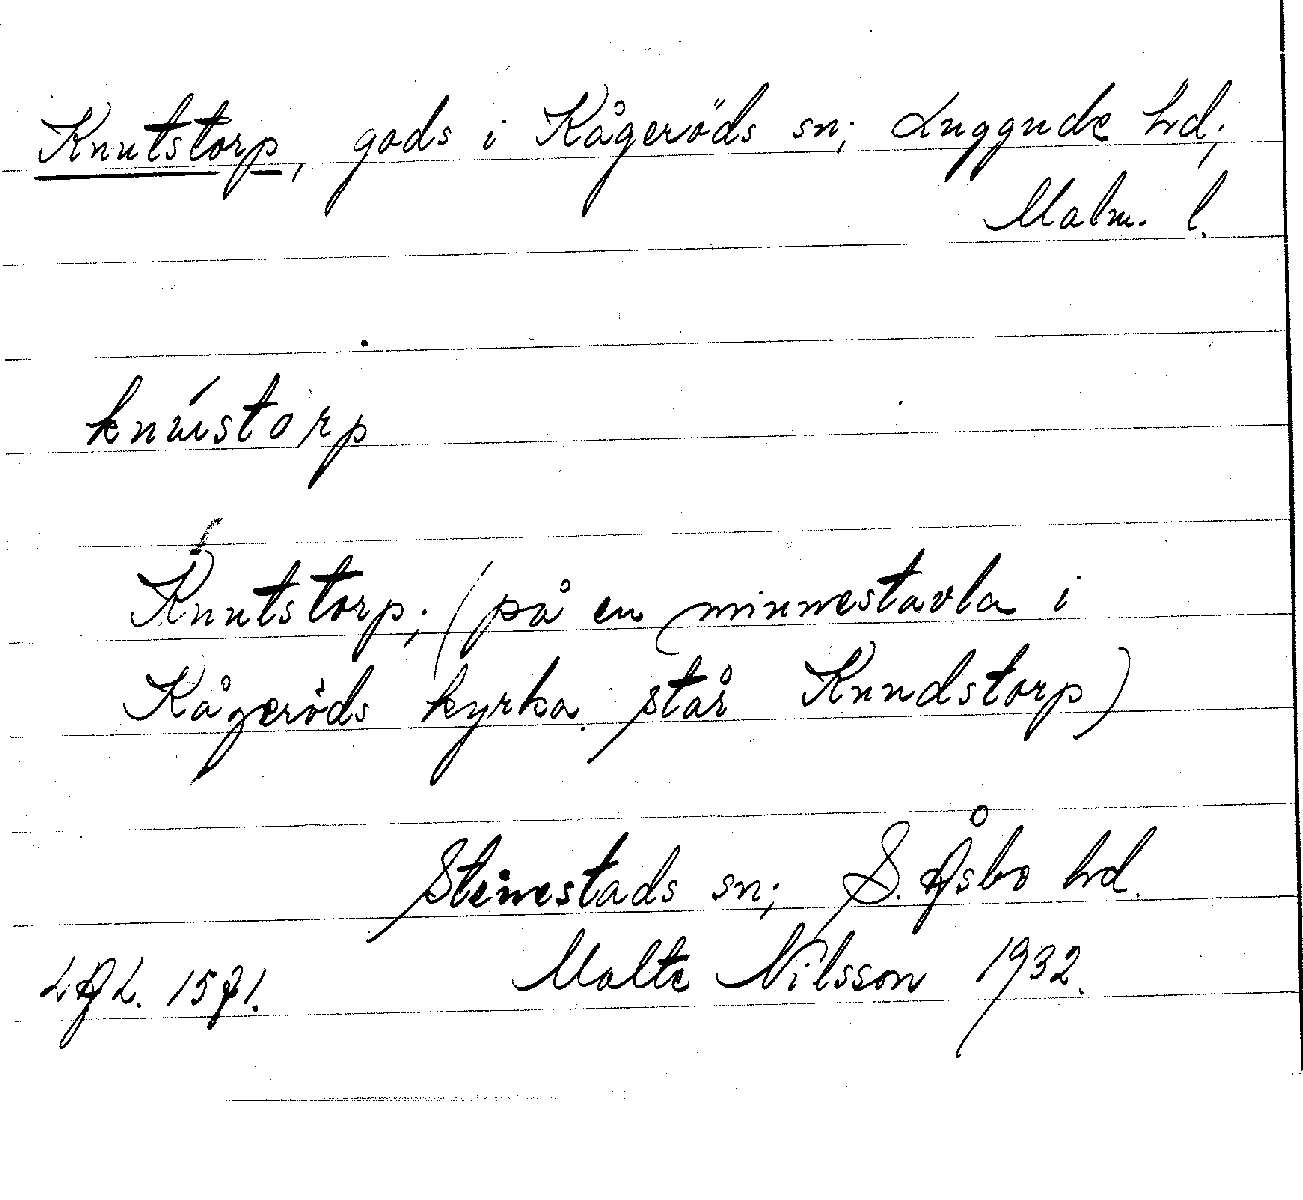 Knutstorp, gods i Kågeröds sn; Luggude hd;
Malm. l.
knústorp
Knutstorp; (på en minnestavla i
Kågeröds kyrka står Knudstorp)
Stenestads sn; S. Åsbo hd.
LAL. 1571. Malte Nilsson 1932.